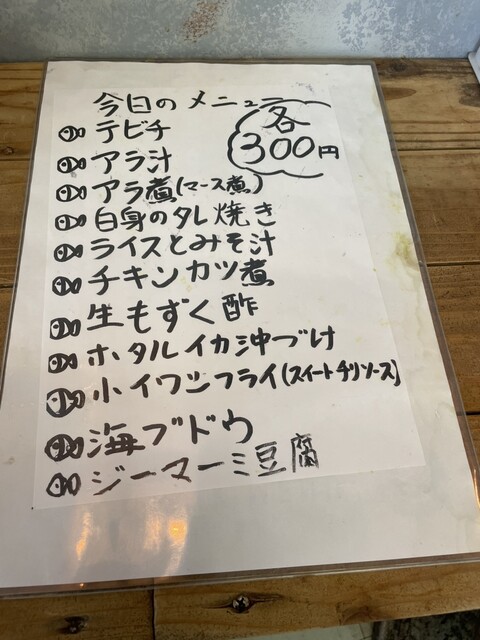 今日のメニュー
各
300円
テビチ
アラ汁
アラ煮(マース煮)
白身のタレ焼き
ライスとみそ汁
チキンカツ煮
生もずく酢
ホタルイカ沖づけ
小イワシフライ(スイートチリソース)
海ブドウ
ジーマーミ豆腐